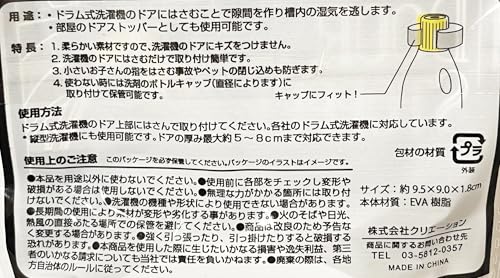 用途：・ドラム式洗濯機のドアにはさむことで隙間を作り槽内の湿気を逃します。
・部屋のドアストッパーとしても使用可能です。
特長：1. 柔らかい素材ですので、洗濯機のドアにキズをつけません。
2. 洗濯機のドアにはさむだけで取り付け簡単です。
3. 小さいお子さんの指をはさむ事故やペットの閉じ込めも防ぎます。
4. 使わない時には洗剤のボトルキャップ(直径によります)に
取り付けて保管可能です。
キャップにフィット!
使用方法
ドラム式洗濯機のドア上部にはさんで取り付けてください。各社のドラム式洗濯機に対応しています。
*縦型洗濯機にも使用可能です。ドアの厚みが最大約5～8cmまで対応できます。
使用上のご注意 このパッケージを必ず保管してください。パッケージのイラストはイメージです。
●本品を用途以外に使わないでください。●使用前に各部をチェックし変形や
破損がある場合は使用しないでください。●無理な力がかかる箇所には取り付
けないでください。●洗濯機の機種や形状により使用できない場合があります。
●長期間の使用により素材が変形や劣化する事があります。●火のそばや日光、
熱風の直接あたる場所での保管を避けてください。●商品は改良のため予告な
く変更する場合があります。●強く引っ張ったり、引っ掛けたりすると破損する
恐れがあります。●本商品を使用した際に生じたいかなる損害や逸失利益、第三
者のいかなる請求についても当社では責任を負いかねます。●廃棄の際は、各地
方自治体のルールに従ってください。
包材の材質：
プラ
外装
サイズ：約 9.5×9.0×1.8cm
本体材質：EVA 樹脂
株式会社クリエーション
商品に関するお問い合わせ先
03-5812-0357
MADE IN CHINA